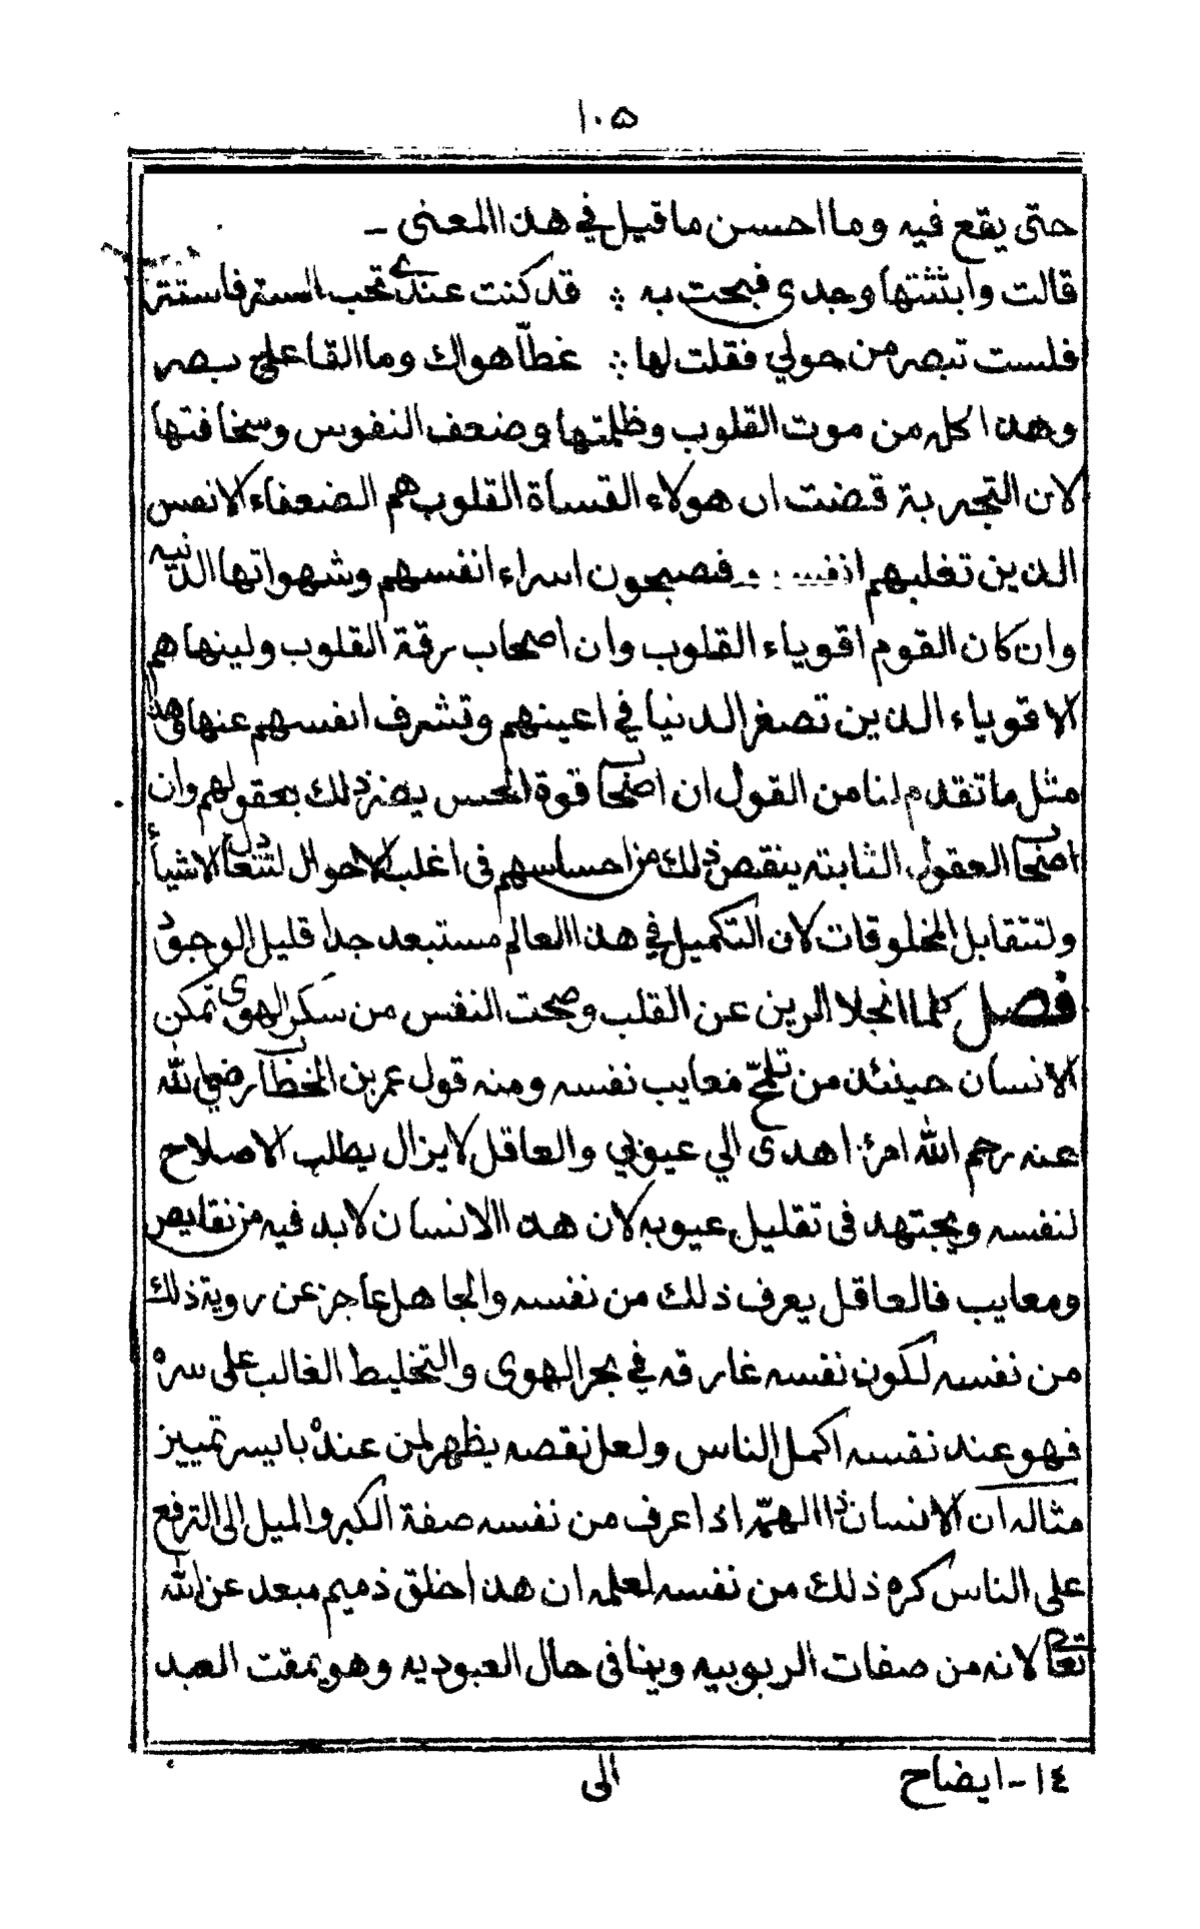 ١٠٥
حتى يقع فيه وما احسن ما قيل في هذا المعنى ـ
قالت وابثثتها وجدي فبحت به ∴ قد كنت عندي تحب الستر فاستتر
فلست تبصر من حولي فقلت لها ∴ غطّا هواك وما القا على بصر
وهذا كله من موت القلوب وظلمتها وضعف النفوس وسخافتها
لان التجربة قضت ان هولاء القساة القلوب هم الضعفاء الانفس
الذين تغلبهم انفسهم فصبحون اسراء انفسهم وشهواتها الدنيه
وان كان القوم اقوياء القلوب وان اصحاب رقة القلوب ولينها هم
الاقوياء الذين تصغر الدنيا في اعينهم وتشرف انفسهم عنها فى هذا
مثل ما تقدم لنا من القول ان اصحاب قوة الحس يضر ذلك بعقولهم وان
اصحاب العقول الثابته ينقص ذلك من احساسهم فى اغلب الاحوال لتتعادل الاشياء
ولتتقابل المخلوقات لان التكميل في هذا العالم مستبعد جدا قليل الوجود
فصل كلما انجلا الرين عن القلب وصحت النفس من سكر الهوى تمكن
الانسان حينئذ من تلمّح معايب نفسه ومنه قول عمر بن الخطاب رضي الله
عنه رحم الله امرئ اهدى الي عيوبي والعاقل لا يزال يطلب الاصلاح
لنفسه ويجتهد فى تقليل عيوبه لان هذا الانسان لابد فيه من نقايص
ومعايب فالعاقل يعرف ذلك من نفسه والجاهل عاجز عن روية ذلك
من نفسه لكون نفسه غارقه في بحر الهوى والتخليط الغالب على سره
فهو عند نفسه اكمل الناس ولعل نقصه يظهر لمن عنده بايسر تمييز
مثاله ان الانسان ذا الهمّه اذا عرف من نفسه صفة الكبر والميل الى الترفع
على الناس كره ذلك من نفسه لعلمه ان هذا خلق ذميم مبعد عن الله
تعالى لانه من صفات الربوبيه وينافى حال العبوديه وهو يمقت العبد
١٤ - ايضاح
الى